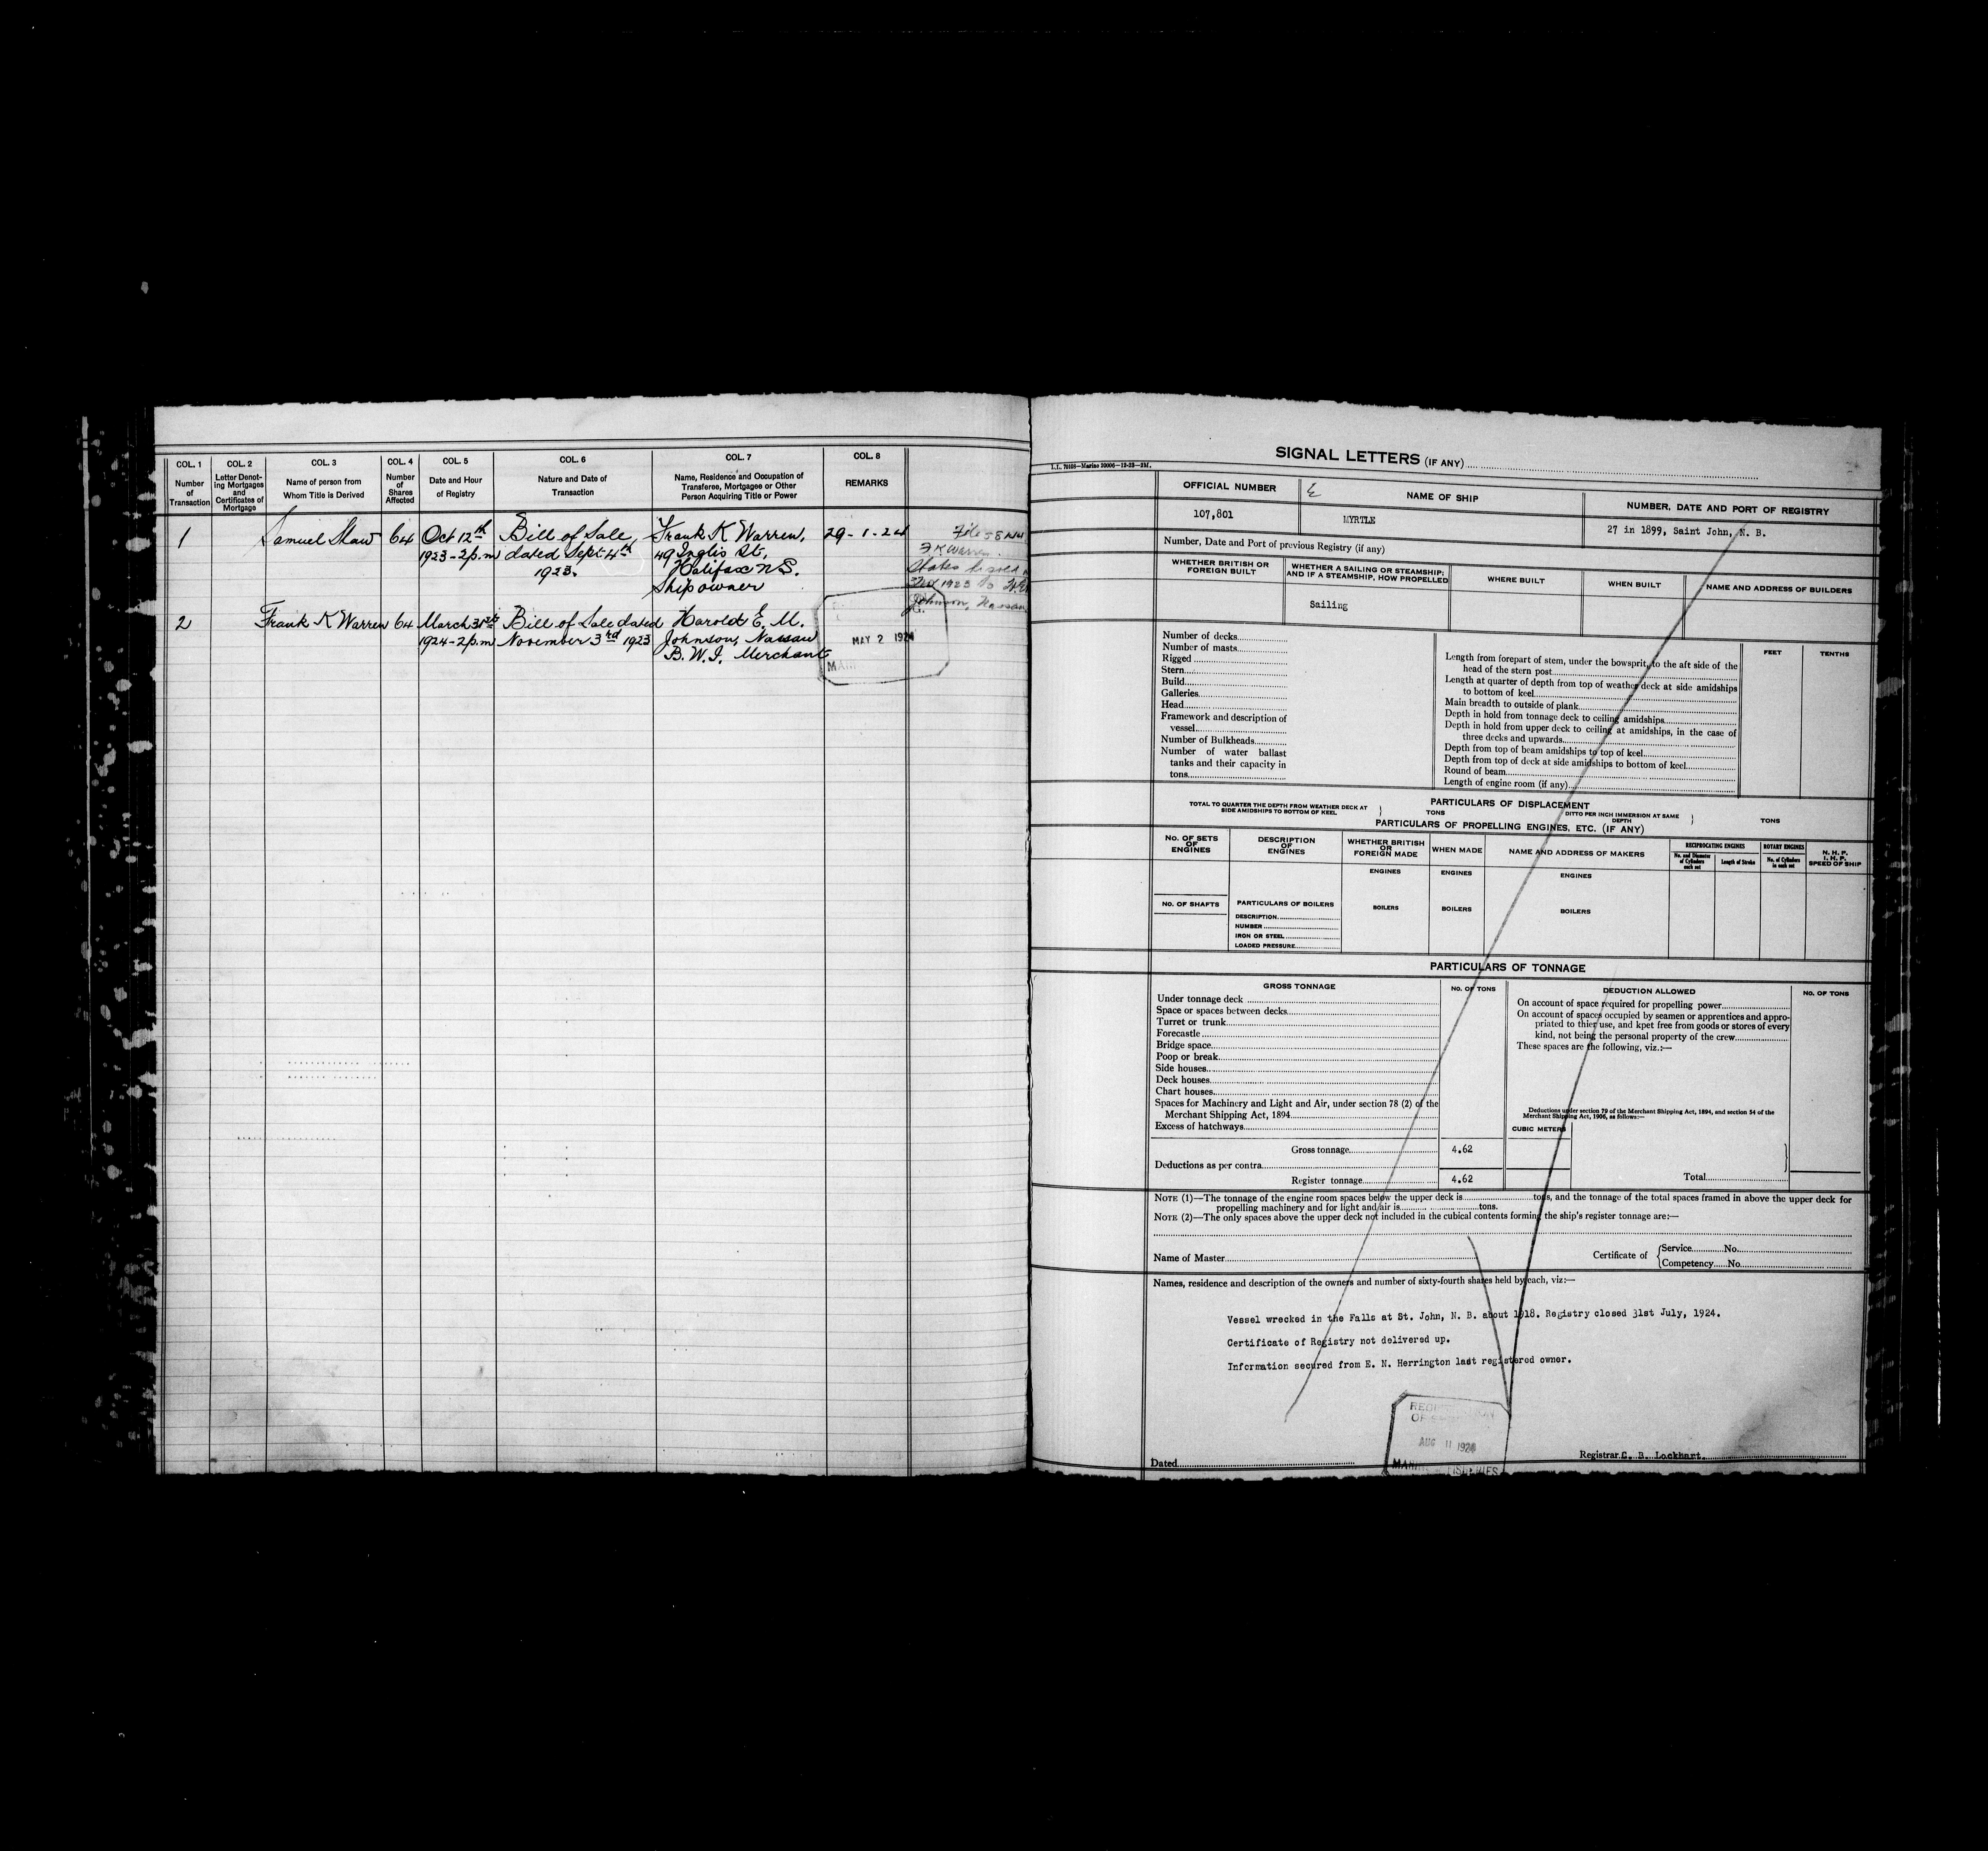 COL. 1
Number
of
Transaction
COL. 2
Letter Denot-
ing Mortgages
and
Certificates of
Mortgage
COL. 3
Name of person from
Whom Title is Derived
COL. 4
Number
of
Shares
Affected
COL. 5
Date and Hour
of Registry
COL. 6
Nature and Date of
Transaction
COL. 7
Name, Residence and Occupation of
Transferee, Mortgagee or Other
Person Acquiring Title or Power
COL. 8
REMARKS
1 Samuel Shaw 64 Oct 12th Bill of Sale, Frank K Warren, 29-1-24
1923-2p.m dated Sept 4th 49 Inglis St,
1923. Halifax N.S.
Shipowner
File 58
F K Warren
States he sold
1923 to
Johnson, Nassau
2 Frank K Warren 64 March 31st Bill of Sale dated Harold E. M.
1924-2p.m November 3rd 1923 Johnson, Nassau
B. W. I. Merchant
MAY 2 1924
SIGNAL LETTERS (IF ANY)
OFFICIAL NUMBER
NAME OF SHIP
NUMBER, DATE AND PORT OF REGISTRY
107,801
MYRTLE
27 in 1899, Saint John, N. B.
Number, Date and Port of previous Registry (if any)
WHETHER BRITISH OR
FOREIGN BUILT
WHETHER A SAILING OR STEAMSHIP;
AND IF A STEAMSHIP, HOW PROPELLED
WHERE BUILT
WHEN BUILT
NAME AND ADDRESS OF BUILDERS
Sailing
Number of decks
Number of masts
Rigged
Stern
Build
Galleries
Head
Framework and description of
vessel
Number of Bulkheads
Number of water ballast
tanks and their capacity in
tons
FEET
TENTHS
Length from forepart of stem, under the bowsprit, to the aft side of the
head of the stern post
Length at quarter of depth from top of weather deck at side amidships
to bottom of keel
Main breadth to outside of plank
Depth in hold from tonnage deck to ceiling amidships
Depth in hold from upper deck to ceiling at amidships, in the case of
three decks and upwards
Depth from top of beam amidships to top of keel
Depth from top of deck at side amidships to bottom of keel
Round of beam
Length of engine room (if any)
PARTICULARS OF DISPLACEMENT
TOTAL TO QUARTER THE DEPTH FROM WEATHER DECK AT
SIDE AMIDSHIPS TO BOTTOM OF KEEL
TONS
DITTO PER INCH IMMERSION AT SAME
DEPTH
TONS
PARTICULARS OF PROPELLING ENGINES, ETC. (IF ANY)
No. OF SETS
OF
ENGINES
DESCRIPTION
OF
ENGINES
WHETHER BRITISH
OR
FOREIGN MADE
WHEN MADE
NAME AND ADDRESS OF MAKERS
RECIPROCATING ENGINES
No. and Diameter
of Cylinders
each set
Length of Stroke
ROTARY ENGINES
No. of Cylinders
in each set
N. H. P.
I. H. P.
SPEED OF SHIP
ENGINES
ENGINES
ENGINES
No. OF SHAFTS
PARTICULARS OF BOILERS
DESCRIPTION
NUMBER
IRON OR STEEL
LOADED PRESSURE
BOILERS
BOILERS
BOILERS
PARTICULARS OF TONNAGE
GROSS TONNAGE
No. OF TONS
DEDUCTION ALLOWED
No. OF TONS
Under tonnage deck
Space or spaces between decks
Turret or trunk
Forecastle
Bridge space
Poop or break
Side houses
Deck houses
Chart houses
Spaces for Machinery and Light and Air, under section 78 (2) of the
Merchant Shipping Act, 1894
Excess of hatchways
On account of space required for propelling power
On account of spaces occupied by seamen or apprentices and appro-
priated to thier use, and kpet free from goods or stores of every
kind, not being the personal property of the crew
These spaces are the following, viz.:—
Deductions under section 79 of the Merchant Shipping Act, 1894, and section 54 of the
Merchant Shipping Act, 1906, as follows:—
CUBIC METERS
Gross tonnage 4.62
Deductions as per contra
Register tonnage 4.62
Total
NOTE (1)—The tonnage of the engine room spaces below the upper deck is tons, and the tonnage of the total spaces framed in above the upper deck for
propelling machinery and for light and air is tons.
NOTE (2)—The only spaces above the upper deck not included in the cubical contents forming the ship's register tonnage are:—
Name of Master
Certificate of
Service No.
Competency No.
Names, residence and description of the owners and number of sixty-fourth shares held by each, viz:—
Vessel wrecked in the Falls at St. John, N. B. about 1918. Registry closed 31st July, 1924.
Certificate of Registry not delivered up.
Information secured from E. N. Herrington last registered owner.
AUG 11 1924
Dated
Registrar C. B. Lockhart.